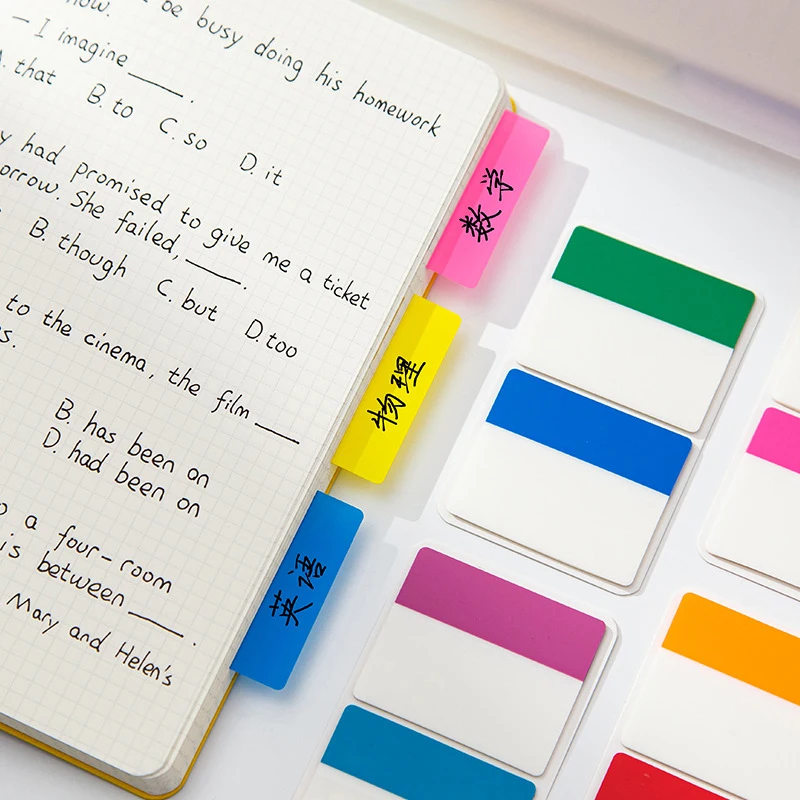 be busy doing his homework
— I imagine ____.
that B. to C. so D. it
had promised to give me a ticket
She failed, ____.
B. though C. but D. too
to the cinema, the film ____
B. has been on
D. had been on
a four-room
is between ____.
Mary and Helen's
数学
物理
英语